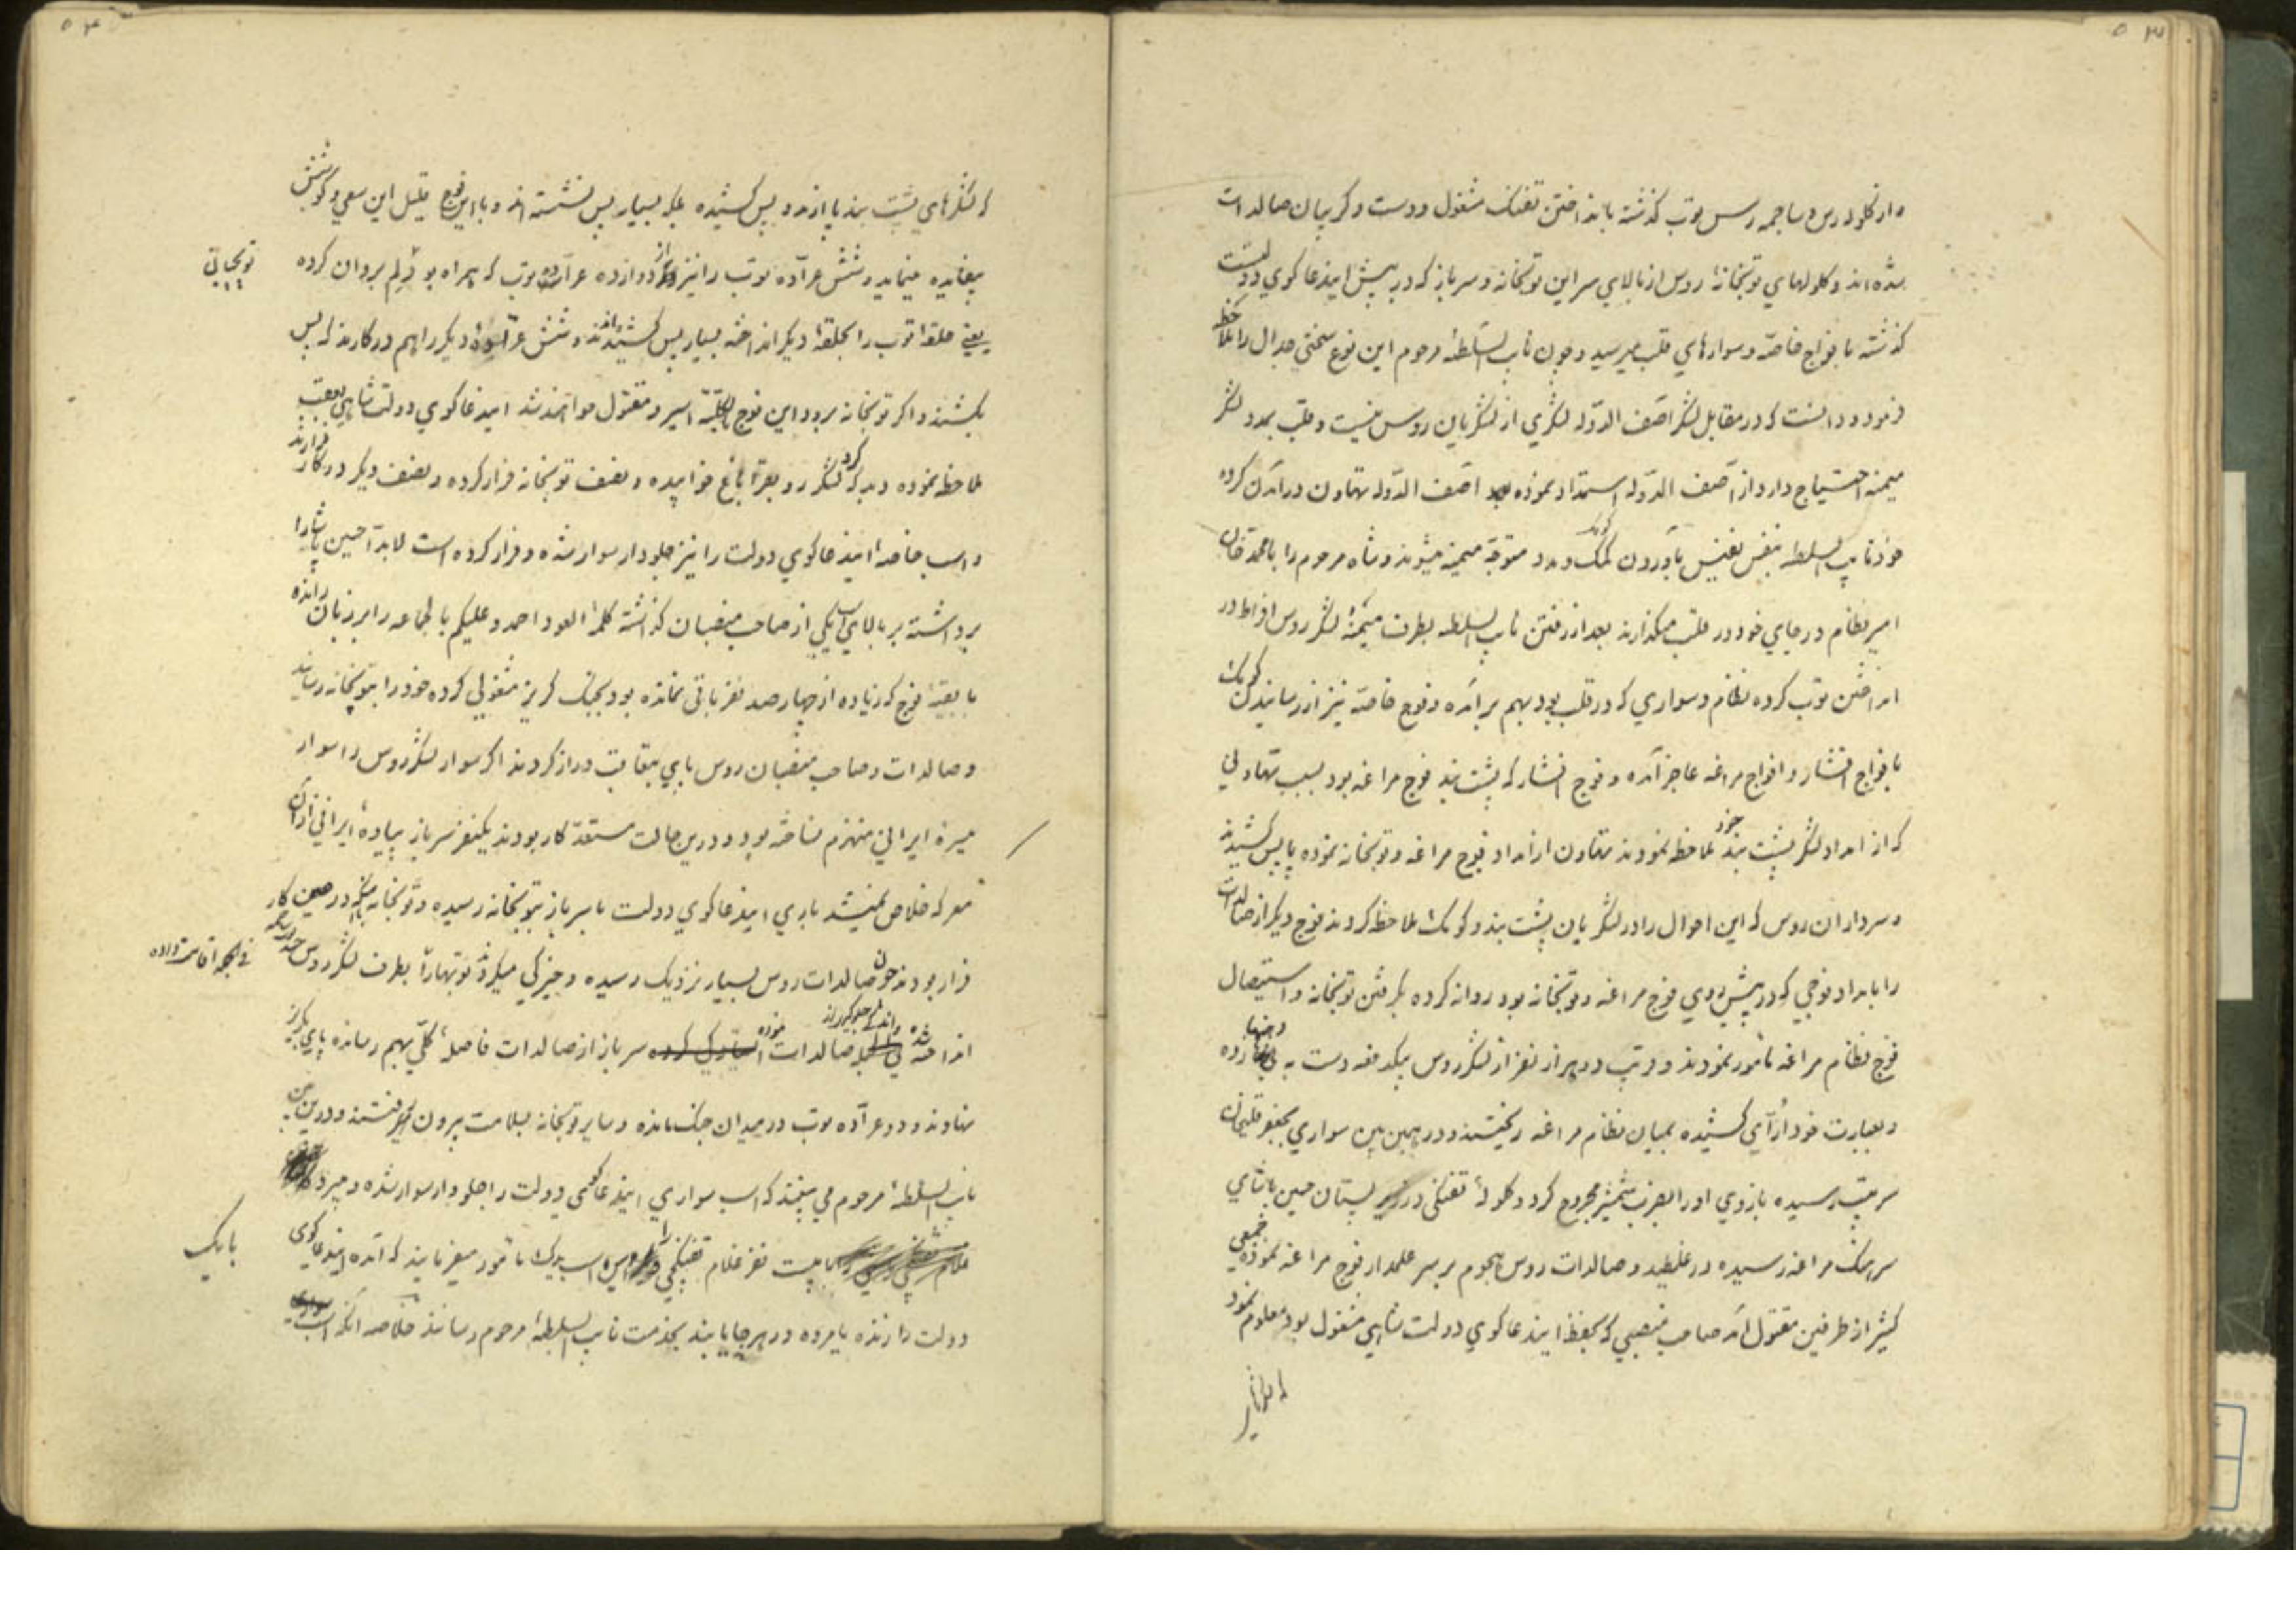 ۵۳
و از گلوله رس و ساچمه رس توپ گذشته بانداختن تفنگ مشغول و دست و گریبان صالدات
شده‌اند و گلولهای توپخانهٔ روس از بالای سر این توپخانه و سرباز که در پیش ایندعاکوی دولتست
گذشته با فواج خاصّه و سوارهای قلب میرسید و چون نایب السّلطهٔ مرحوم این نوع سختی جدال را ملاحظه
فرمود و دانست که در مقابل لشکر آصف الدّوله لشکری از لشکریان روس نیست و قلب بمدد لشکر
میمنه احتیاج دارد از آصف الدّوله استمداد نموده آصف الدّوله تهاون در آمدن کرده
خود نایب السلطه بنفس نفیس بآوردن کمک و مدد متوجّه میمنه میشوند و شاه مرحوم را با محمد خان
امیر نظام در جای خود در قلب میگذارند بعد از رفتن نایب السلطه بطرف میمنهٔ لشکر روس افراط در
انداختن توپ کرده نظام و سواری که در قلب بود بهم برآمده و فوج خاصّه نیز از رسانیدن کومک
با فواج افشار و افواج مراغه عاجز آمده و فوج افشار که پشت بند فوج مراغه بود بسبب تهاونی
که از امداد لشکر پشت بند خود ملاحظه نمودند تهاون از امداد فوج مراغه و توپخانه نموده پا پس کشیدند
و سرداران روس که این احوال را در لشکریان پشت بند و کومک ملاحظه کردند فوج دیگر از صالدات
را بامداد فوجی که در پیش روی فوج مراغه و توپخانه بود روانه کرده بگرفتن توپخانه و استیصال
فوج نظام مراغه مأمور نمودند و قریب دو هزار نفر از لشکر روس بیکدفعه دست به
و بعبارت خود اُرآی کشیده بمیان نظام مراغه ریختند و در همین بین سواری بجعفر قلیخان
سرتیپ رسیده بازوی او را بضرب شمشیر مجروح کرد و گلولهٔ تفنگی در زیر پستان حسین پاشای
سرهنگ مراغه رسیده در غلطید و صالدات روس هجوم بر سر علمدار فوج مراغه نموده جمعی
کثیر از طرفین مقتول آمد صاحب منصبی که بحفظ ایندعاکوی دولت شاهی مشغول بود معلوم نمود
۵۴
که لشکرهای پشت بند پا از مدد پس کشیده بلکه بسیار پس نشسته‌اند و با این فوج قلیل این سعی و کوشش
بیفایده مینماید و شش عرّاده توپ را نیز از دوازده عرّاده توپ که همراه بود بردان کرده
توپچیانی
یعنی حلقهٔ توپ را بحلقهٔ دیگر انداخته بسیار پس کشیده‌اند و شش عرّادهٔ دیگر را هم در کارند که پس
بکشند و اگر توپخانه برود این فوج اسیر و مقتول خواهند شد ایندعاکوی دولت شاهی بعقب
ملاحظه نموده دید که لشکر رو بقرا باغ خوابیده و نصف توپخانه فرار کرده و نصف دیگر در کار فرارند
و اسب خاصهٔ ایندعاکوی دولت را نیز جلودار سوار شده و فرار کرده است لابد حسین پاشا را
برداشته بر بالای اسب یکی از صاحب منصبان گذاشته کلمهٔ العود احمد و علیکم بالجماعه را بر زبان رانده
با بقیّهٔ فوج که زیاده از چهارصد نفر باقی نمانده بود بجنگ گریز مشغولی کرده خود را بتوپخانه رسانید
و صالدات و صاحب منصبان روس پای بتعاقب دراز کردند اگر سوار لشکر روس را سوار
میسرهٔ ایرانی منهزم نساخته بود و درین حالت مستعدّ کار بودند یکنفر سرباز پیادهٔ ایرانی از آن
معرکه خلاص نمیشد باری ایندعاکوی دولت با سرباز بتوپخانه رسیده و توپخانه در عین کار
فرار بودند چون صالدات روس بسیار نزدیک رسیده و چیرگی میکرد توپها را بطرف لشکر روس
فی الجمله اقامت داده
انداخته صالدات سرباز از صالدات فاصلهٔ کلّی بهم رسانده پای بگریز
نهادند و دو عرّاده توپ در میدان جنگ مانده و سایر توپخانه بسلامت بیرون رفتند و درین بین
نایب السلطهٔ مرحوم می بینند که اسب سواری ایندعاکوی دولت را جلودار سوار شده و میرود
بیست نفر غلام تفنگچی را اسب یدک مأمور میفرمایند که آمده ایندعاکوی
بایک
دولت را زنده یا مرده در هر جا یابند بخدمت نایب السلطهٔ مرحوم رسانند خلاصه آنکه اسب